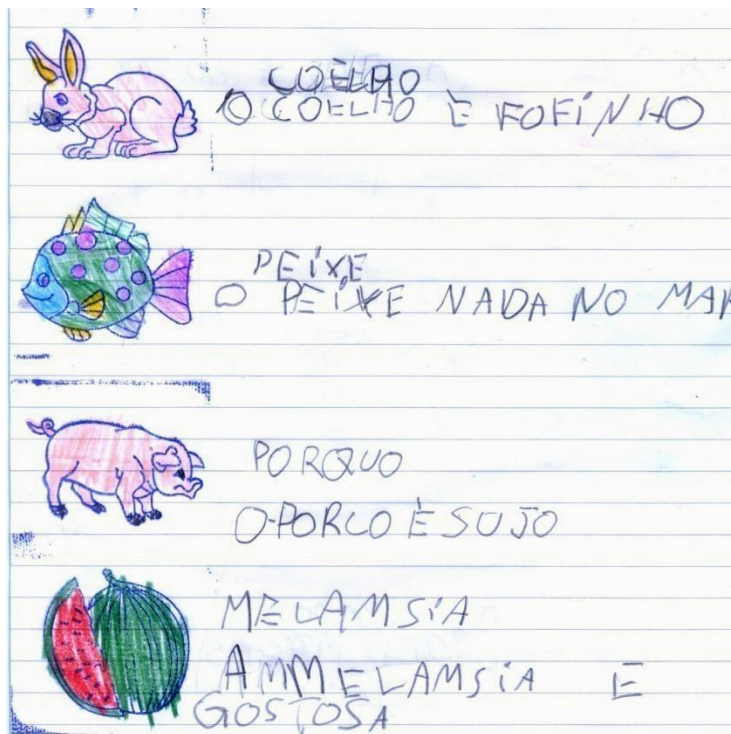 COELHO
O COELHO È FOFINHO
PEIXE
O PEIXE NADA NO MAR
PORQUO
O PORCO È SUJO
MELAMSIA
AMMELAMSIA E
GOSTOSA